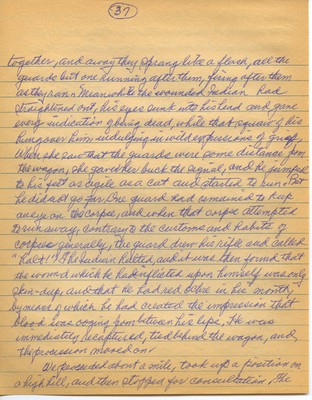 37
together, and away they sprang like a flash, all the
guards but one running after them, firing after them
as they ran. Meanwhile the wounded Indian had
straightened out, his eyes sunk into his head and gave
every indication of being dead, while that squaw of his
hung over him indulging in wild expressions of grief.
When she saw that the guards were some distance from
the wagon, she gave her buck the signal, and he jumped
to his feet as agile as a cat and started to run. But
he did not go far. One guard had remained to keep
an eye on the corpse, and when that corpse attempted
to run away, contrary to the customs and habits of
corpses generally, the guard drew his rifle and called
"Halt"! The Indian halted, and it was then found that
the wound which he had inflicted upon himself was only
skin-deep, and that he had red in his mouth,
by means of which he had created the impression that
blood was oozing from between his lips. He was
immediately recaptured, tied behind the wagon, and
the procession moved on.
We proceeded about a mile, took up a position on
a high hill, and then stopped for consultation. The